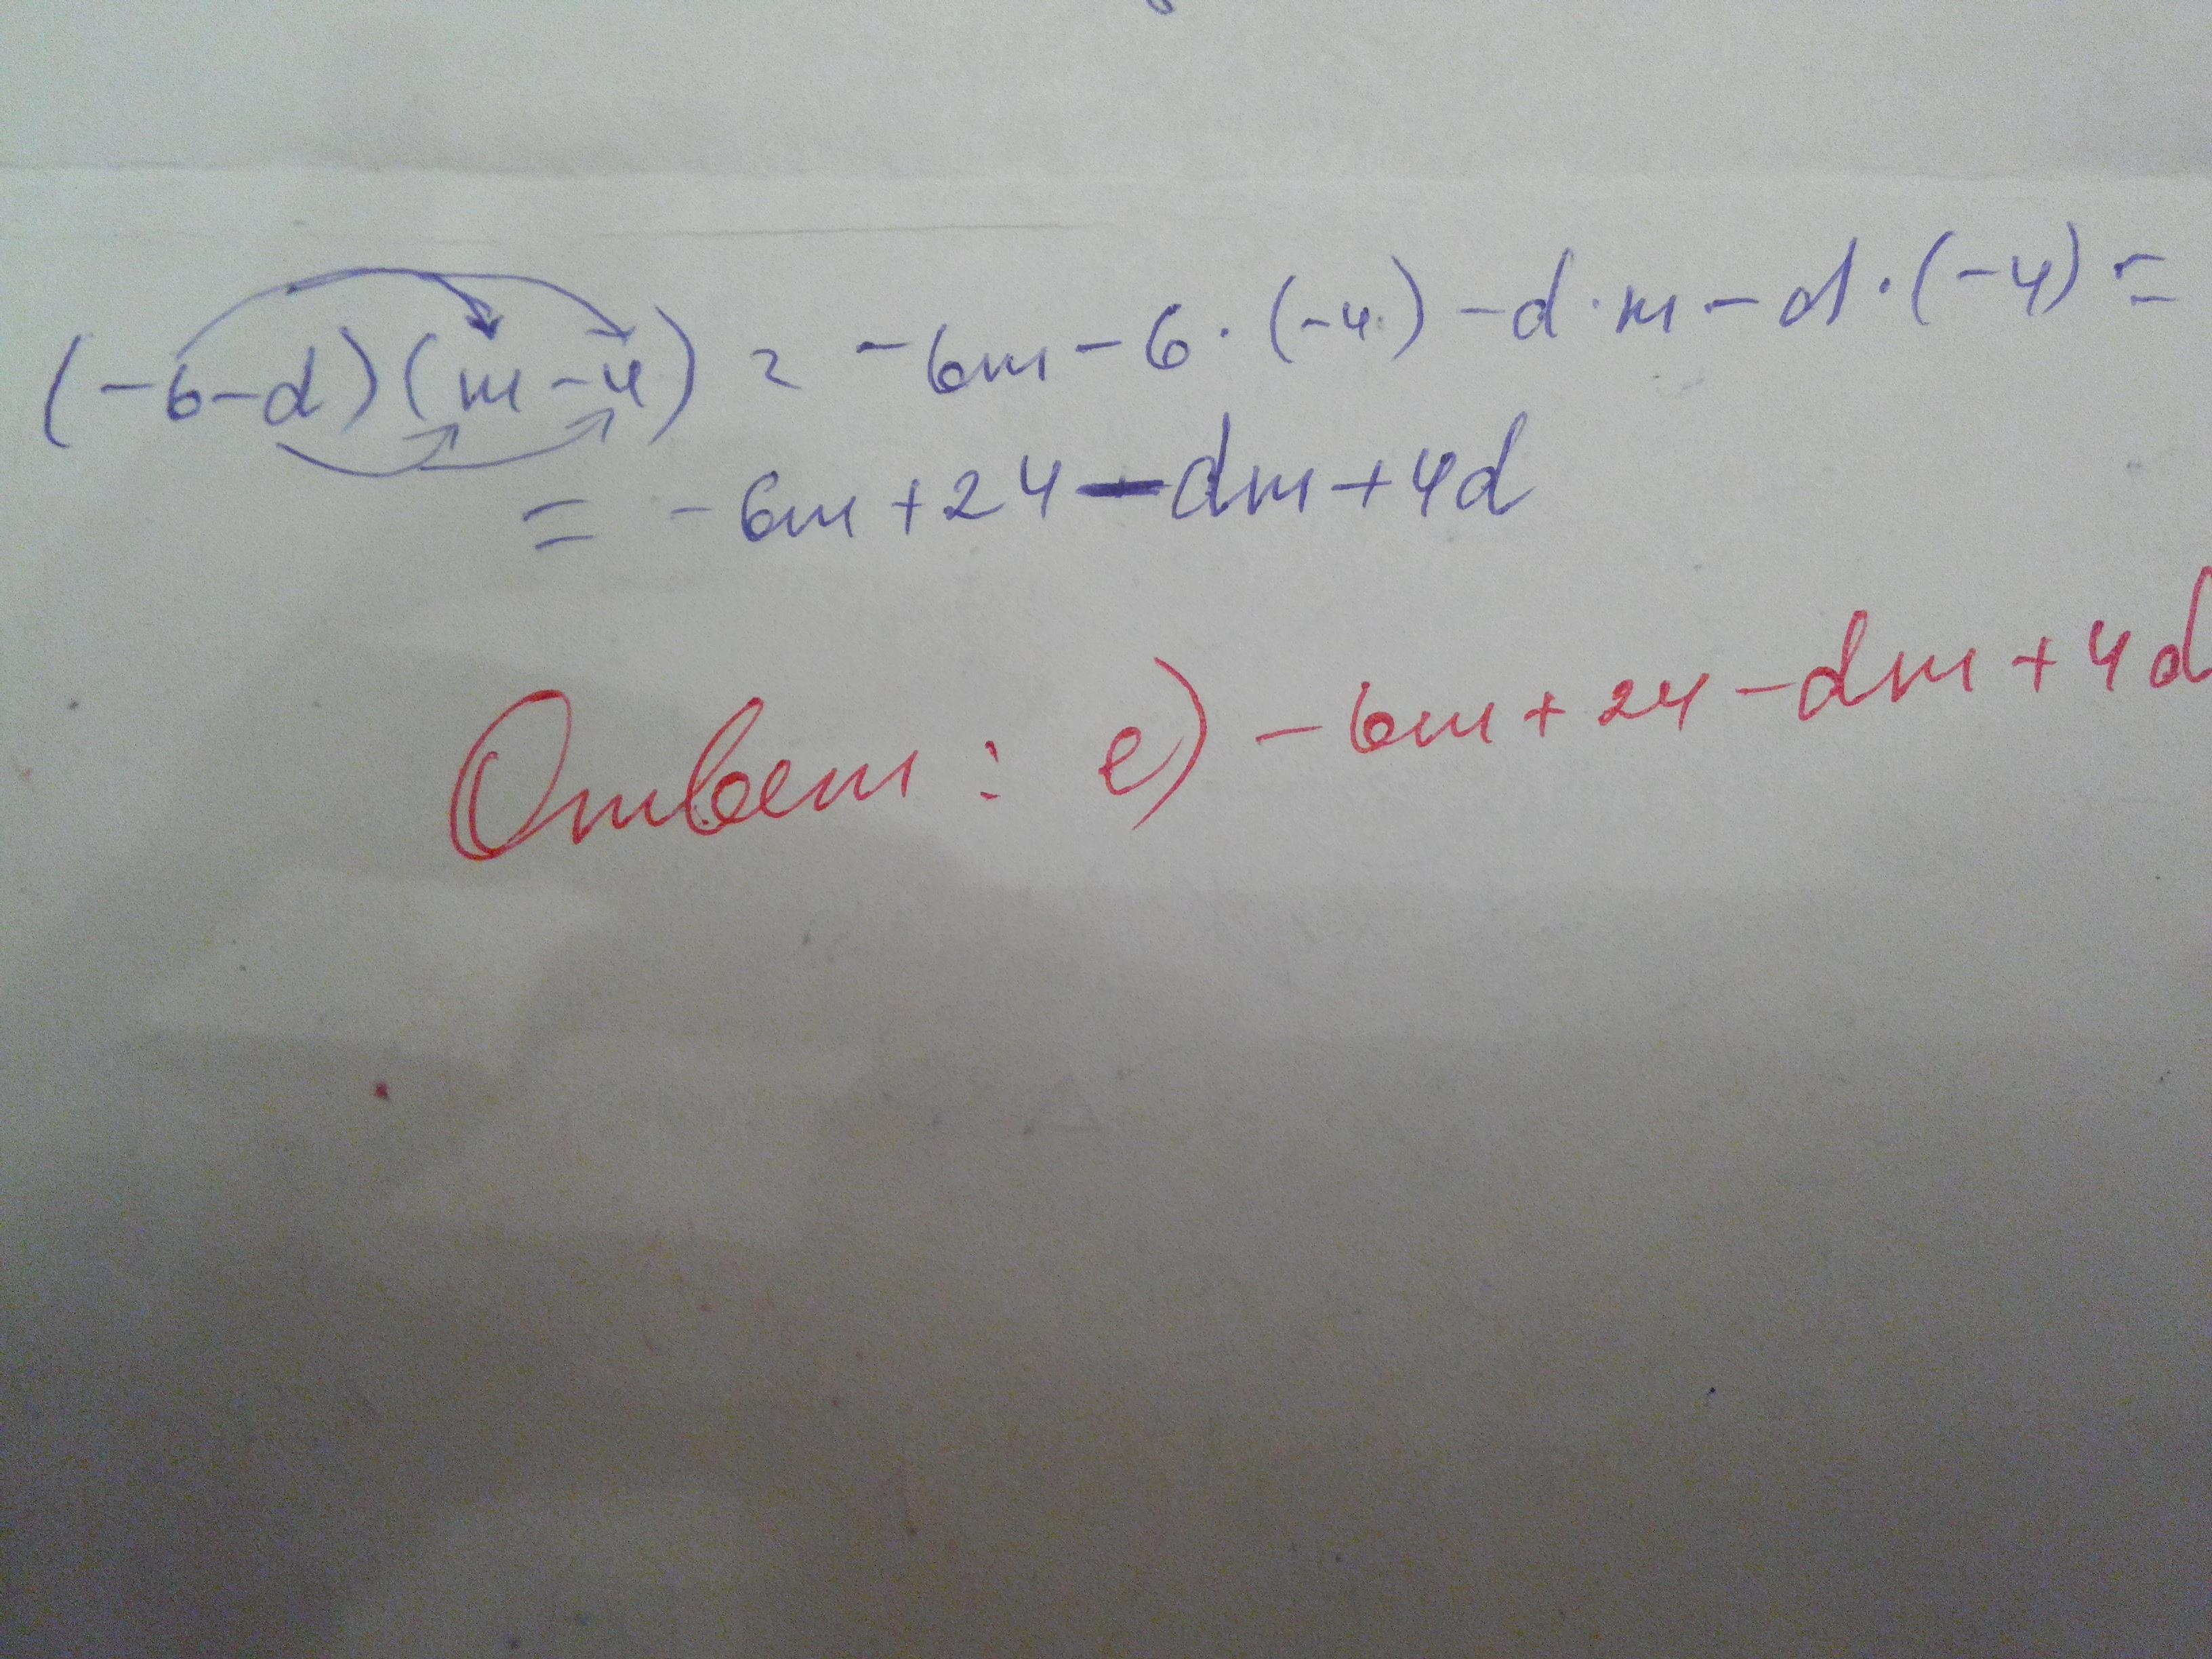 (-6-d)(m-4) = -6m-6·(-4)-d·m-d·(-4)=
= -6m+24-dm+4d
Ответ: e) -6m+24-dm+4d